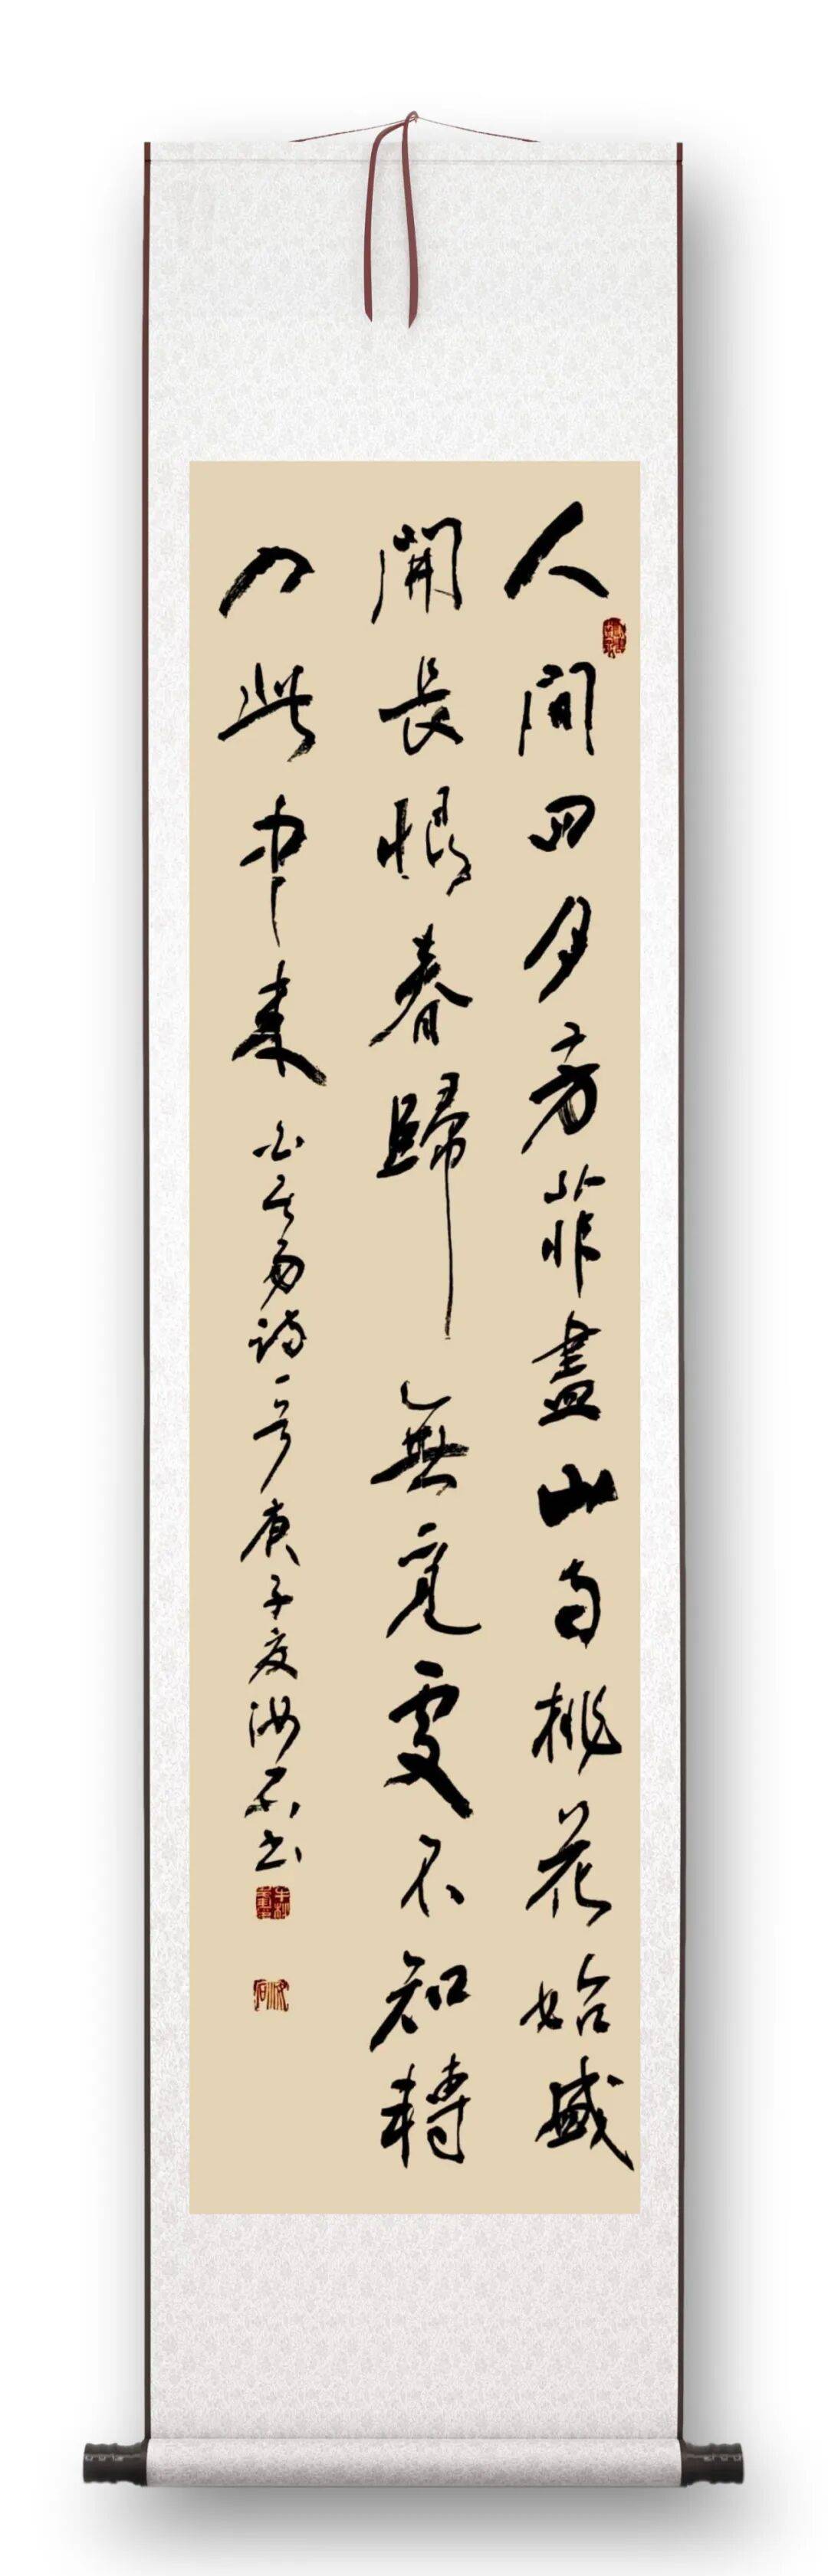 人間四月芳菲盡山寺桃花始盛
開長恨春歸無覓處不知轉
入此中來白居易詩一首庚子夏汝石书
汝石